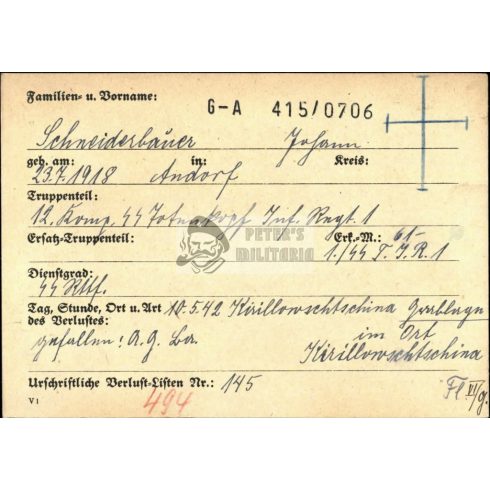 Familien- u. Vorname:
G-A 415/0706
Schneiderbauer Johann
geb. am: in: Kreis:
23.7.1918 Andorf
Truppenteil:
12. Komp. SS Totenkopf Inf. Regt. 1
Ersatz-Truppenteil: Erk.-M.: 61-
1./SS T.I.R.1
PETER'S
MILITARIA
Dienstgrad:
SS Rttf.
Tag, Stunde, Ort u. Art 10.5.42 Kirillowschtschina Grablage
des Verlustes: im Ort
gefallen: A.G. Kirillowschtschina
Urschriftliche Verlust-Listen Nr.: 145
V1 494